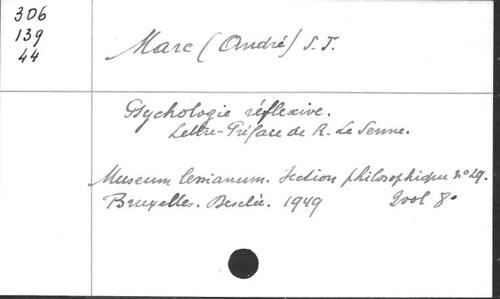 306
139
44
Marc (André) S. J.
Psychologie réflexive.
Lettre-Préface de R. Le Senne.
Museum lessianum. Section philosophique n° 29.
Bruxelles. Desclée. 1949 2vol 8°